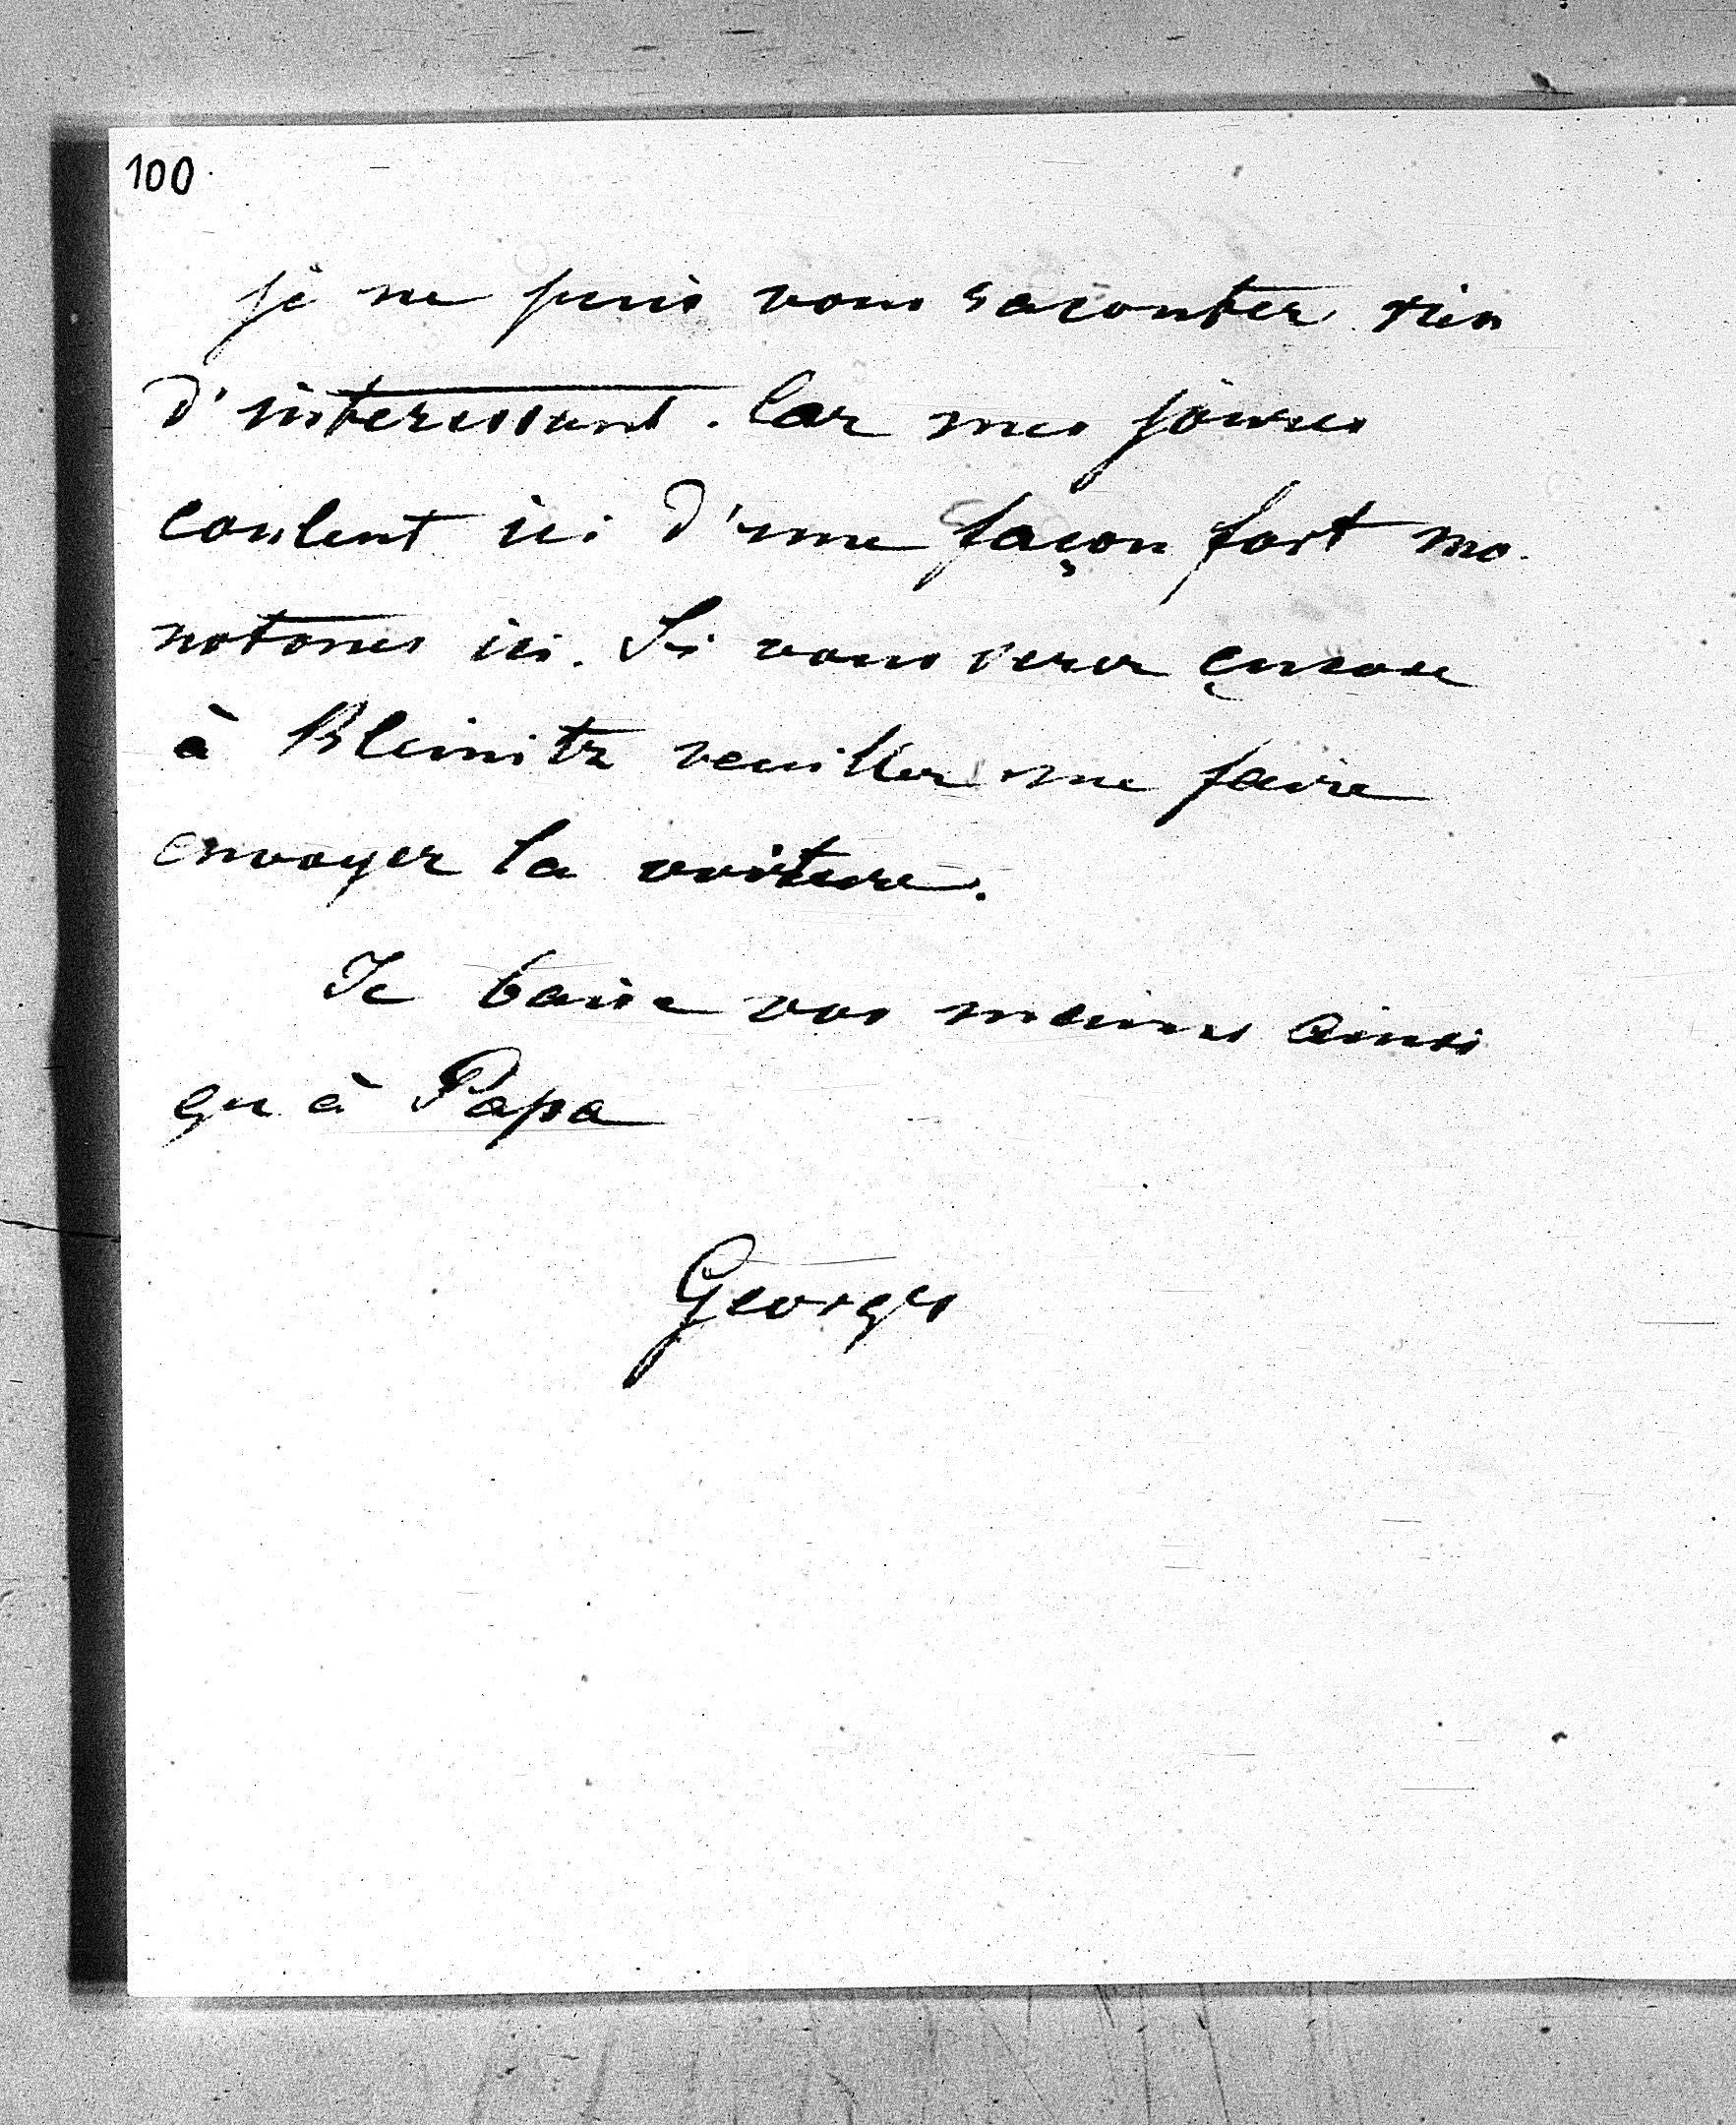 100
je ne puis vous raconter rien
d'interessant. Car mes jours
coulent ici d'une façon fort mo-
notones ici. Si vous serer encore
à Bleinitz veuiller me faire
envoyer la voiture.
Je baise vos mains ainsi
qu à Papa
Georges